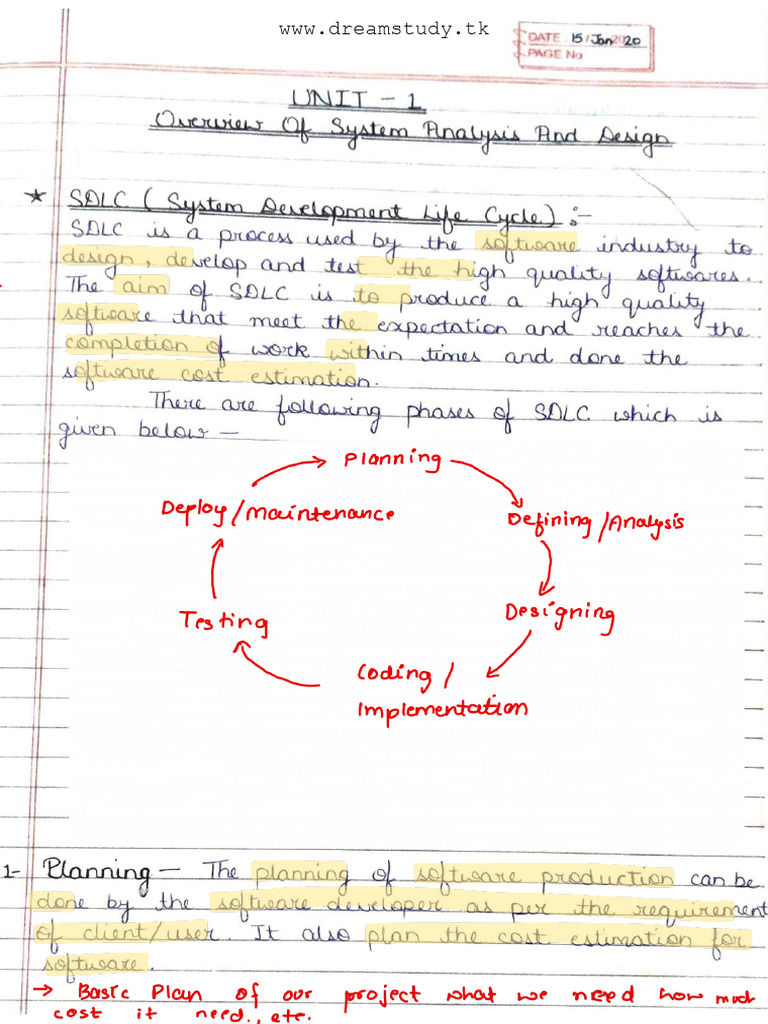 www.dreamstudy.tk
DATE: 15/Jan2020
PAGE No
UNIT - 1
Overview Of System Analysis And Design
* SDLC ( System Development Life Cycle) :-
SDLC is a process used by the software industry to
design, develop and test the high quality softwares.
The aim of SDLC is to produce a high quality
software that meet the expectation and reaches the
completion of work within times and done the
software cost estimation.
There are following phases of SDLC which is
given below -
Planning
Deploy/maintenance
Defining/Analysis
Testing
Designing
Coding/
Implementation
1- Planning - The planning of software production can be
done by the software developer as per the requirement
of client/user. It also plan the cost estimation for
software.
→ Basic Plan of our project what we need how much
cost it need., etc.